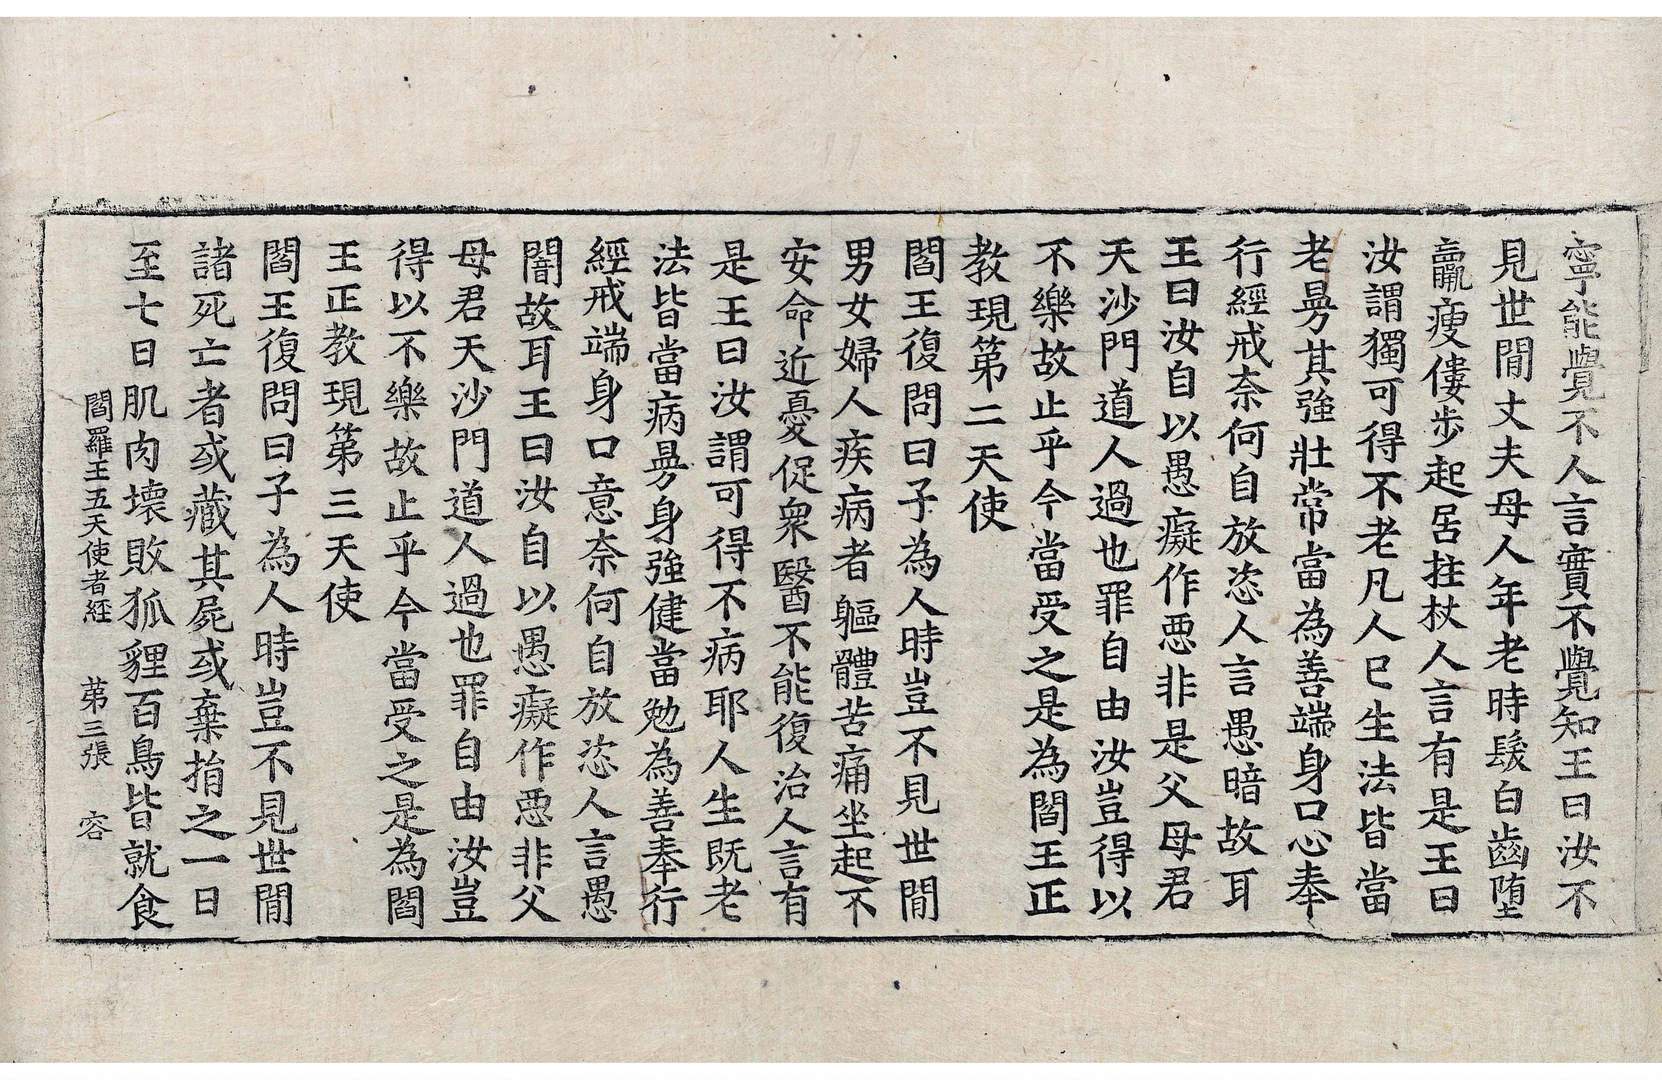 寧能覺不人言實不覺知王曰汝不
見世閒丈夫母人年老時髮白齒墮
羸瘦僂步起居拄杖人言有是王曰
汝謂獨可得不老凡人已生法皆當
老曼其強壯常當為善端身口心奉
行經戒柰何自放恣人言愚暗故耳
王曰汝自以愚癡作惡非是父母君
天沙門道人過也罪自由汝豈得以
不樂故止乎今當受之是為閻王正
教現第二天使
閻王復問曰子為人時豈不見世閒
男女婦人疾病者軀體苦痛坐起不
安命近憂促衆醫不能復治人言有
是王曰汝謂可得不病耶人生既老
法皆當病曼身強健當勉為善奉行
經戒端身口意柰何自放恣人言愚
闇故耳王曰汝自以愚癡作惡非父
母君天沙門道人過也罪自由汝豈
得以不樂故止乎今當受之是為閻
王正教現第三天使
閻王復問曰子為人時豈不見世閒
諸死亡者或藏其屍或棄捐之一日
至七日肌肉壞敗狐狸百鳥皆就食
閻羅王五天使者經 第三張 容